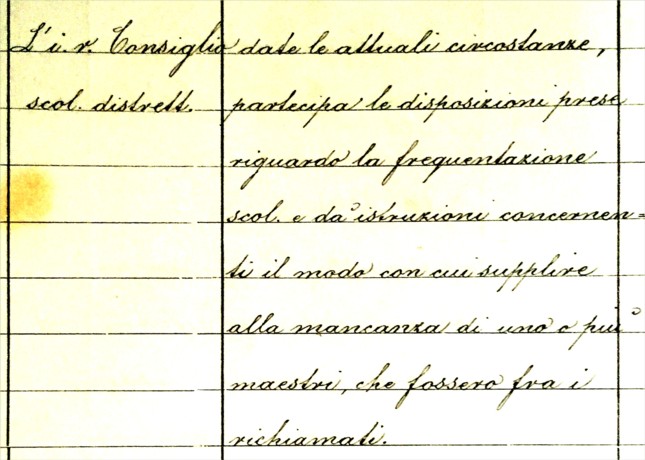 L'i. r. Consiglio
scol. distrett.
date le attuali circostanze,
partecipa le disposizioni prese
riguardo la frequentazione
scol. e dà istruzioni concernen=
ti il modo con cui supplire
alla mancanza di uno o più
maestri, che fossero fra i
richiamati.